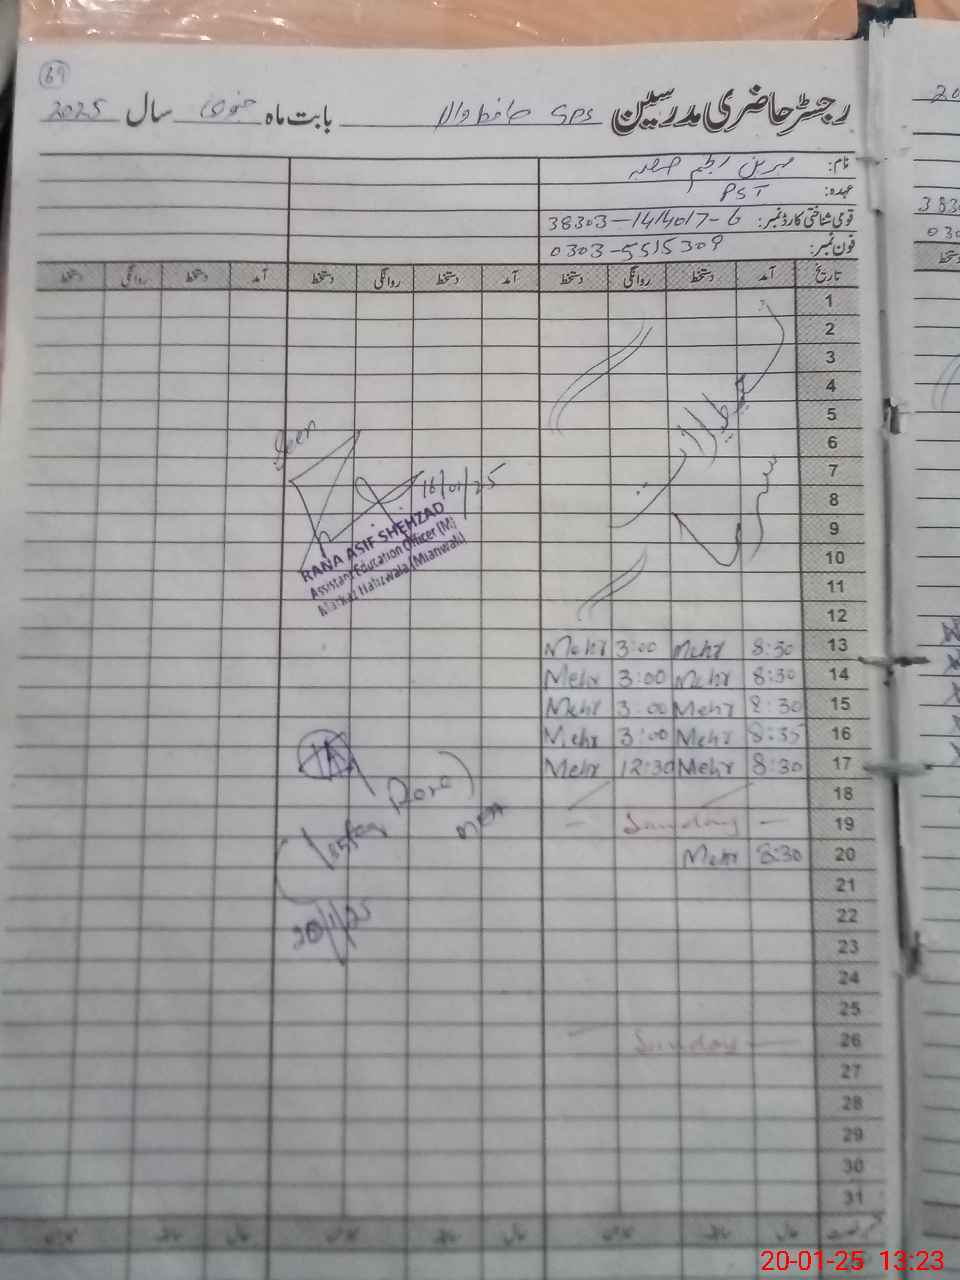 69
رجسٹر حاضری مدرسین GPS حافظ والا بابت ماہ جنوری سال 2025
نام:
عہدہ: PST
قومی شناختی کارڈ نمبر: 38303-1414017-6
فون نمبر: 0303-5515309
تاریخ آمد دستخط روانگی دستخط آمد دستخط روانگی دستخط آمد دستخط روانگی دستخط
1
2
3
4
5
6
7
8
9
10
11
12
موسم سرما
تعطیلات
Seen
16/01/25
RANA ASIF SHEHZAD
Assistant Education Officer (M)
Markaz Hafizwala (Mianwali)
13 8:30 Mehr 3:00 Mehr
14 8:30 Mehr 3:00 Mehr
15 8:30 Mehr 3:00 Mehr
16 8:35 Mehr 3:00 Mehr
17 8:30 Mehr 12:30 Mehr
18
19 — Sunday —
20 8:30 Mehr
21
22
23
24
25
26 — Sunday —
27
28
29
30
31
MEA
20/1/25
20-01-25 13:23